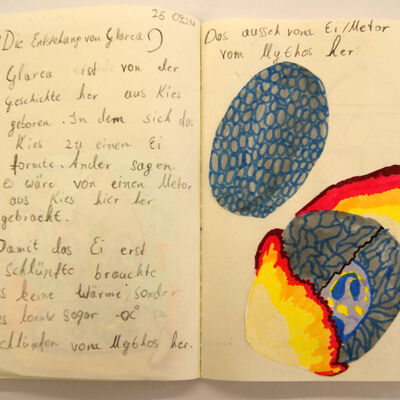 26 09.24
(Die Entstehung von Glarea)
Glarea ist de von der
Geschichte her aus Kies
geboren. In dem sich das
Kies zu einem Ei
formte. Ander sagen
es wäre von einen Metor
aus Kies hier her
gebracht.
Damit das Ei erst
Schlüpfte brauchte
es keine Wärme, sonder
es konnte sogar -0C°
schlüpfen vona Mythos her.
Das aussch vona Ei/Metor
vom Mythos her